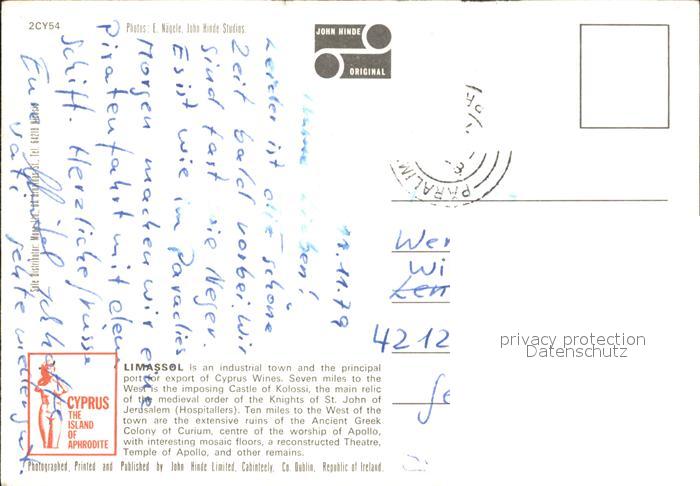 2CY54
Photos: E. Nägele, John Hinde Studios.
JOHN HINDE
ORIGINAL
11.11.79
Leider ist die schöne
Zeit bald vorbei. Wir
sind fast wie Neger.
Es ist wie im Paradies
Morgen machen wir eine
Piratenfahrt mit dem
Schiff. Herzliche Grüsse
PARALIM
Wer
Wi
4212
privacy protection
Datenschutz
LIMASSOL is an industrial town and the principal
port for export of Cyprus Wines. Seven miles to the
West is the imposing Castle of Kolossi, the main relic
of the medieval order of the Knights of St. John of
Jerusalem (Hospitallers). Ten miles to the West of the
town are the extensive ruins of the Ancient Greek
Colony of Curium, centre of the worship of Apollo,
with interesting mosaic floors, a reconstructed Theatre,
Temple of Apollo, and other remains.
CYPRUS
THE
ISLAND
OF
APHRODITE
Photographed, Printed and Published by John Hinde Limited, Cabinteely, Co. Dublin, Republic of Ireland.